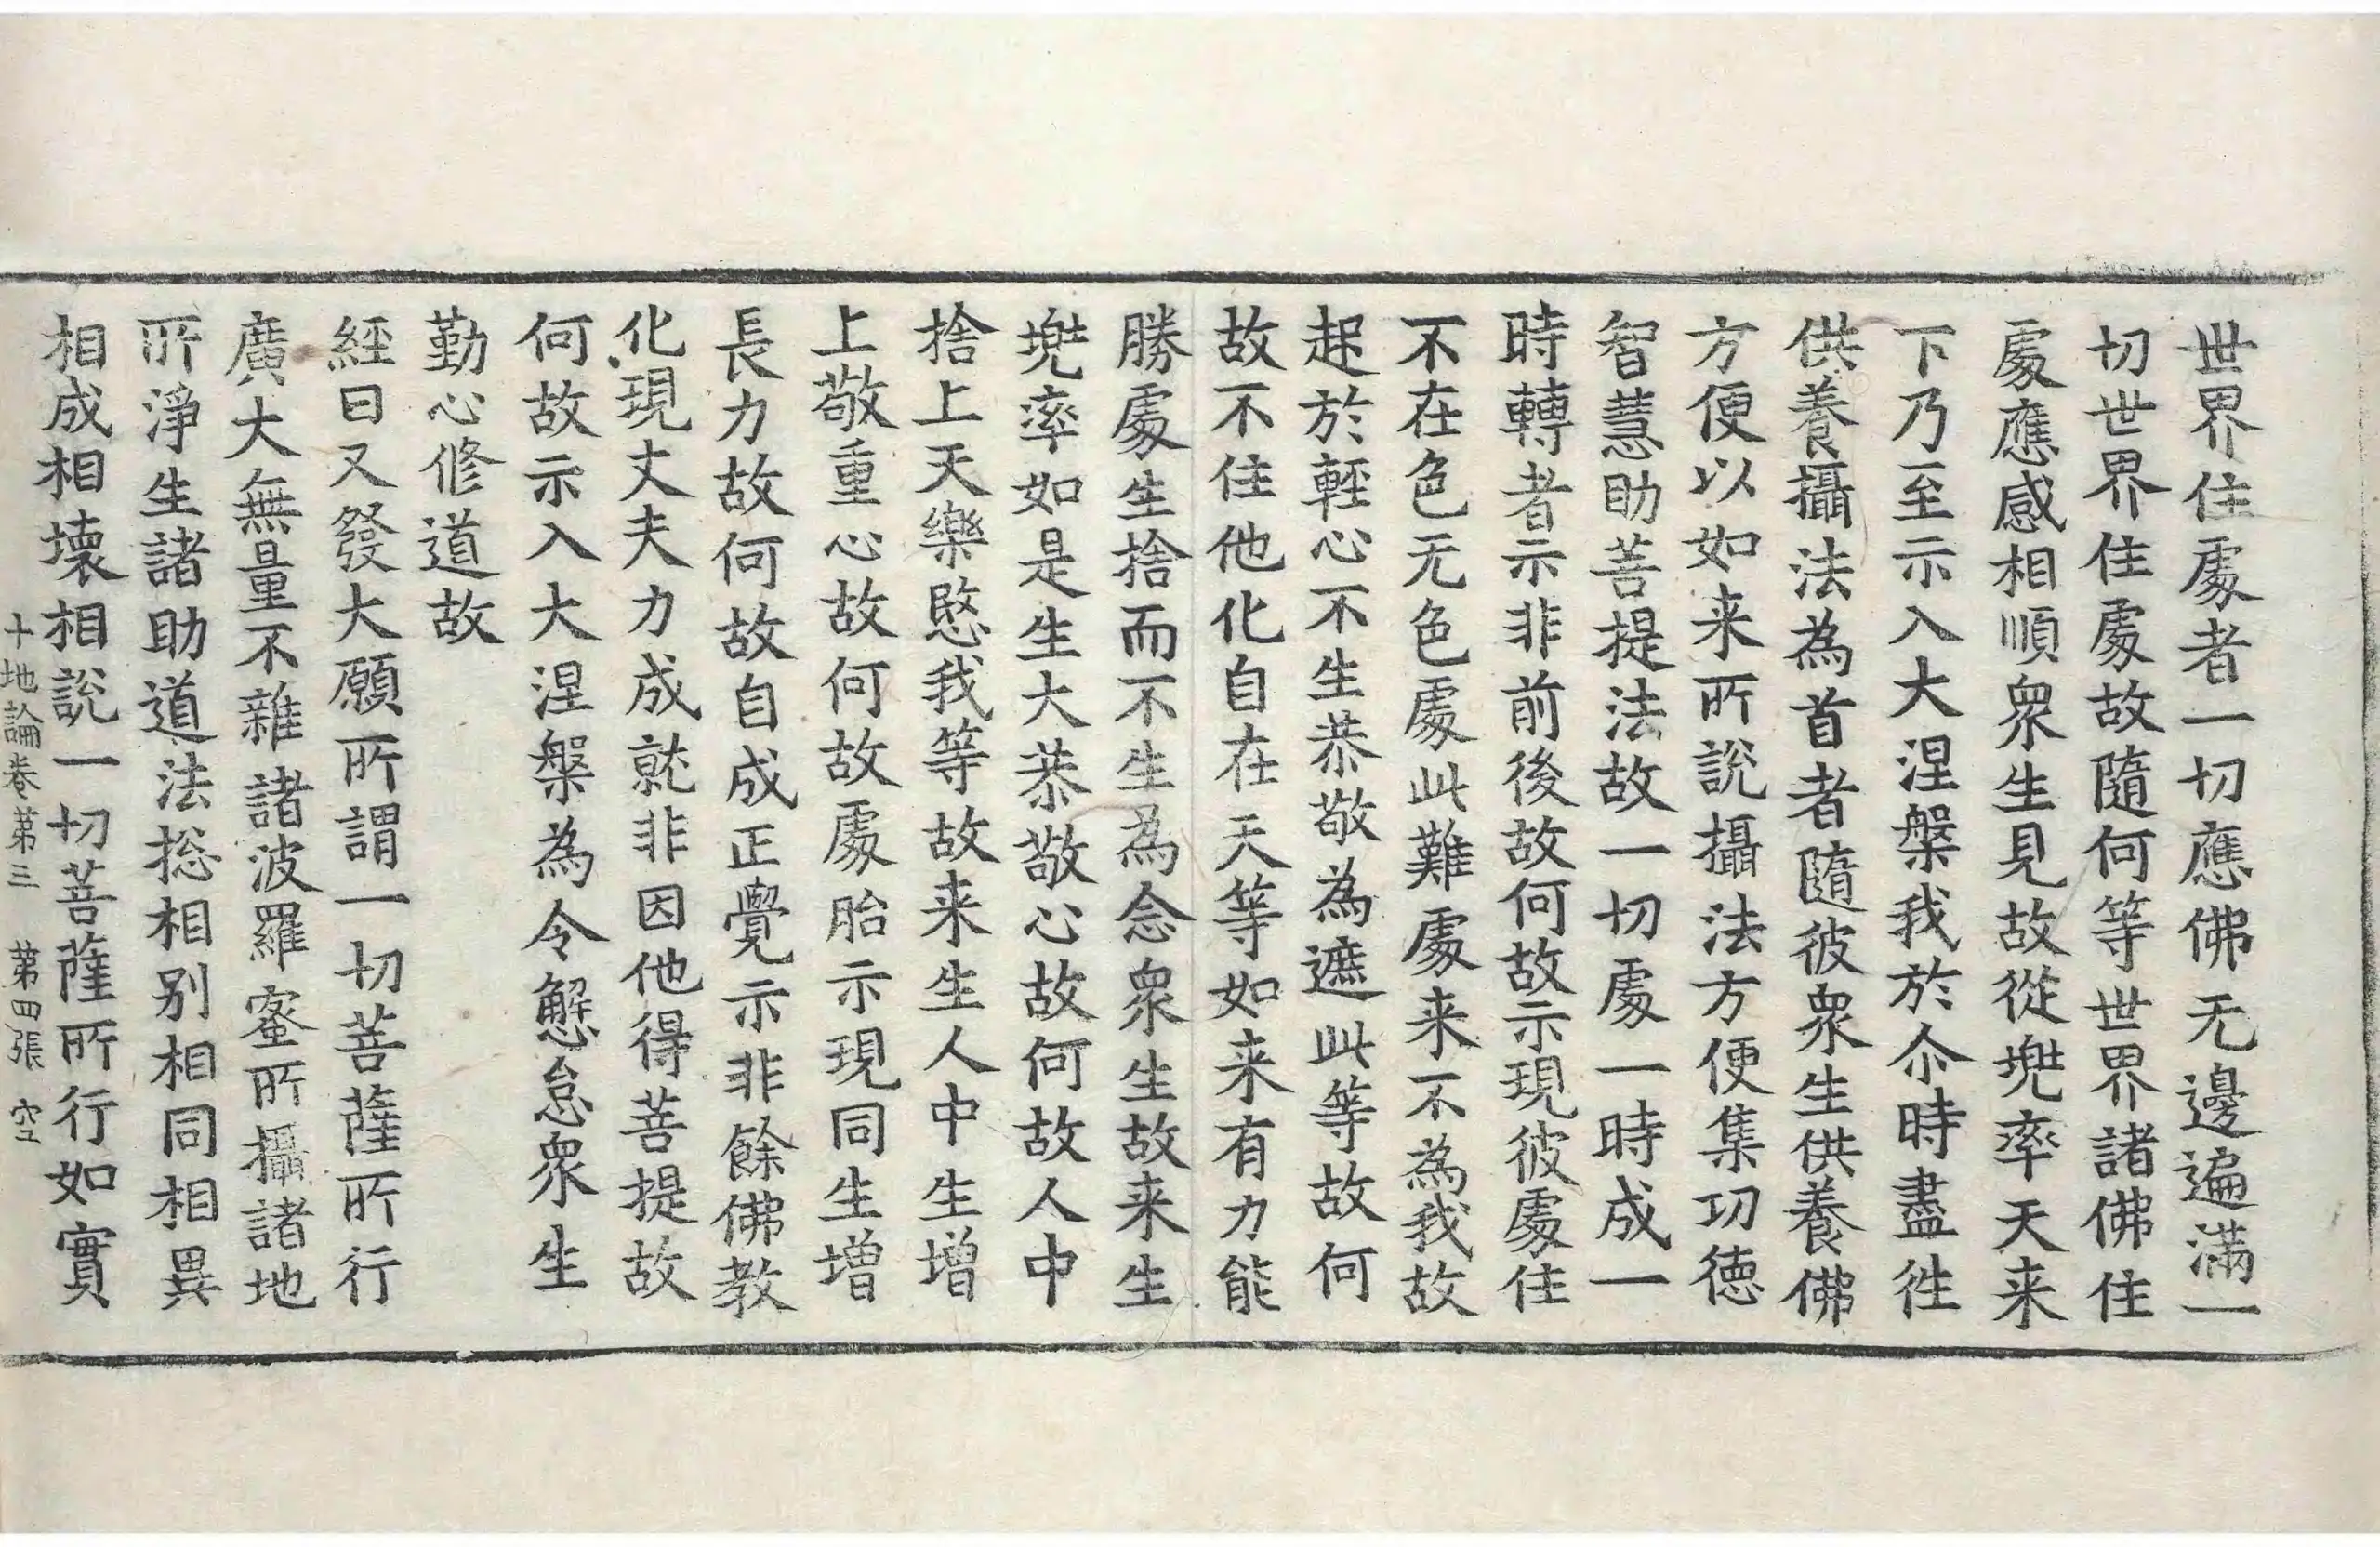 世界住處者一切應佛无邊遍滿一
切世界住處故隨何等世界諸佛住
處應感相順衆生見故從兠率天来
下乃至示入大涅槃我於尒時盡徃
供養攝法為首者隨彼衆生供養佛
方便以如来所說攝法方便集功徳
智慧助菩提法故一切處一時成一
時轉者示非前後故何故示現彼處住
不在色无色處此難處来不為我故
起於輕心不生恭敬為遮此等故何
故不住他化自在天等如来有力能
勝處生捨而不生為念衆生故来生
兠率如是生大恭敬心故何故人中
捨上天樂愍我等故来生人中生增
上敬重心故何故處胎示現同生增
長力故何故自成正覺示非餘佛教
化現丈夫力成就非因他得菩提故
何故示入大涅槃為令懈怠衆生
勤心修道故
經曰又發大願所謂一切菩薩所行
廣大無量不雜諸波羅蜜所攝諸地
所淨生諸助道法捴相别相同相異
相成相壊相說一切菩薩所行如實
十地論卷第三 第四張 空